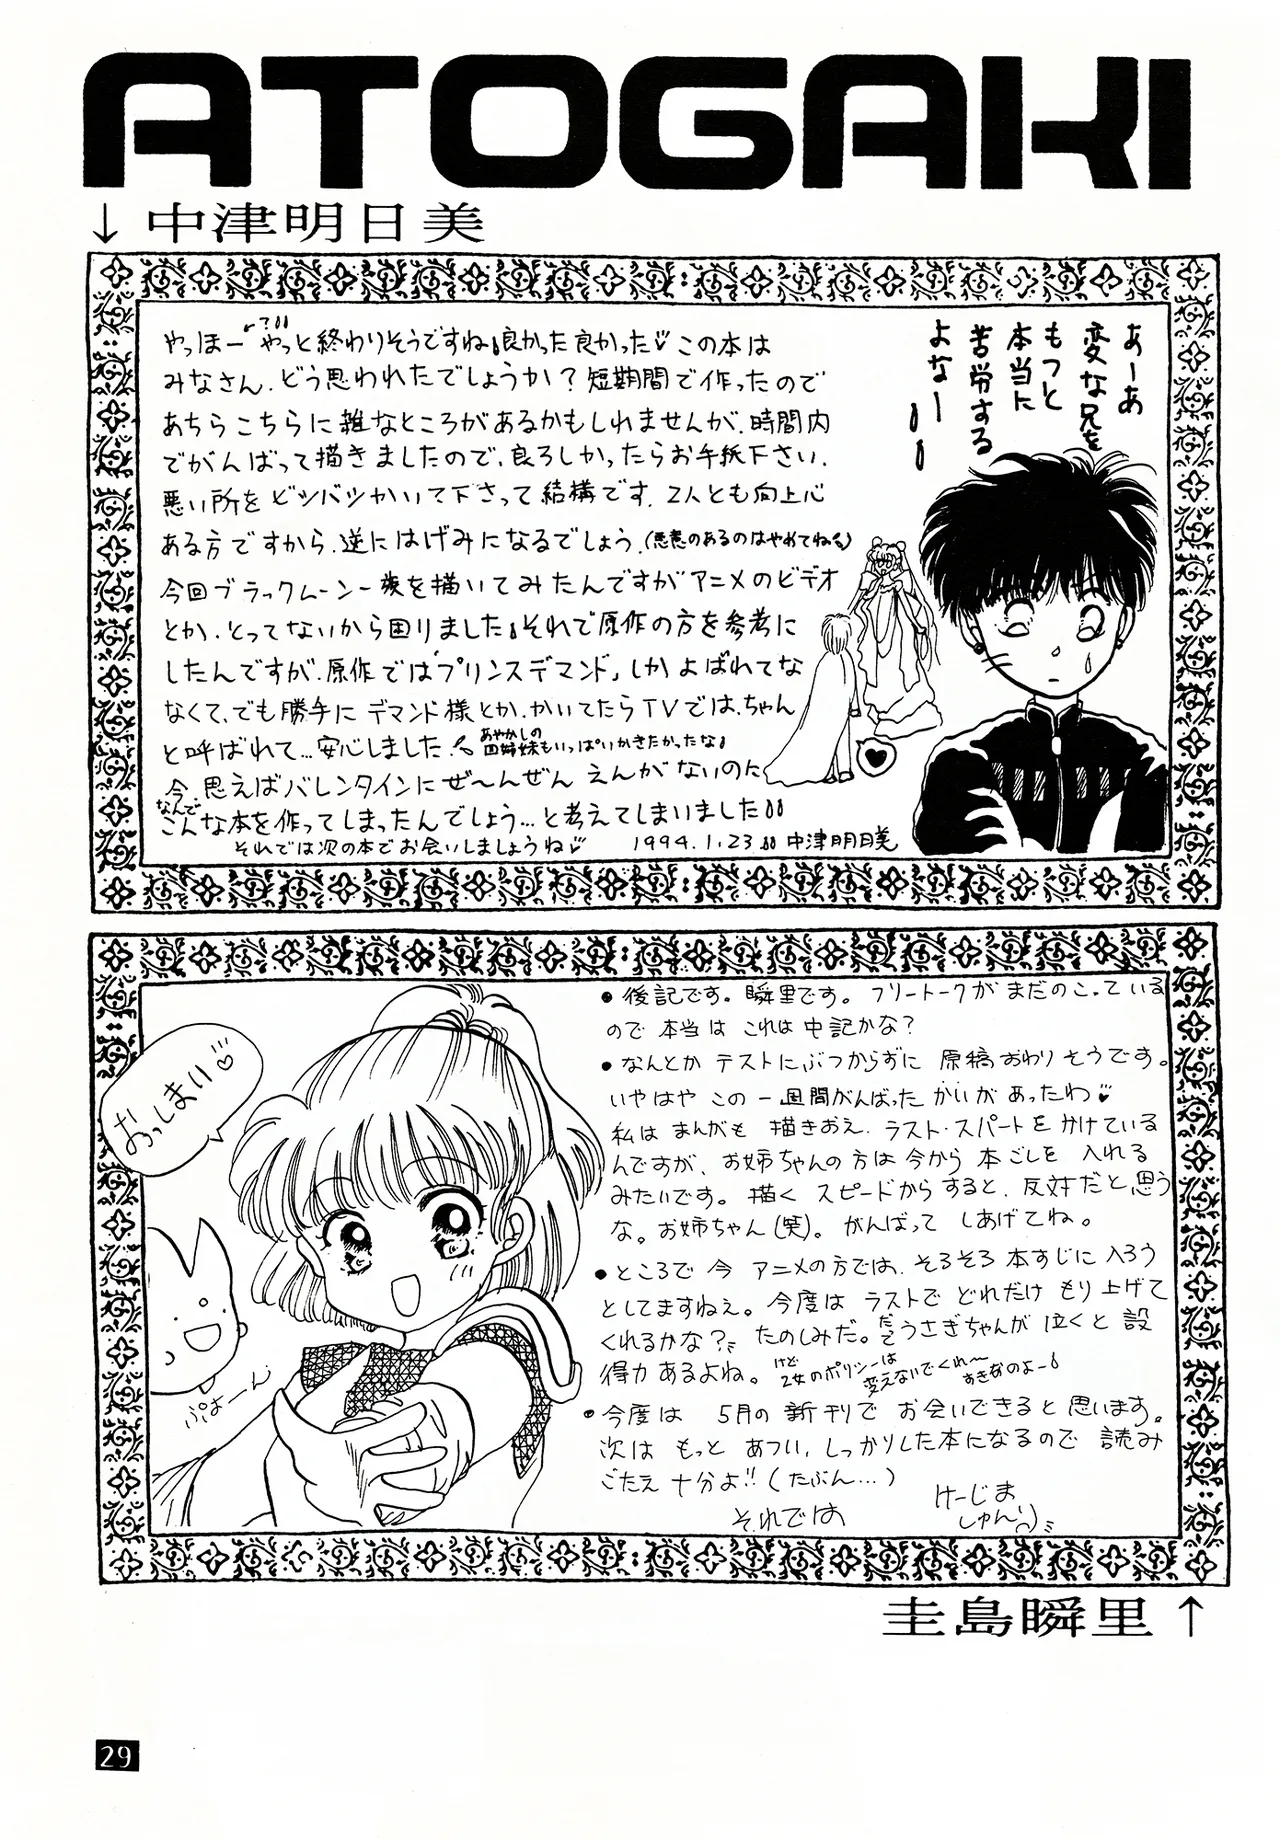 ATOGAKI
↓中津明日美
やっほー やっと終わりそうですね 良かった良かった♡ この本は
みなさん、どう思われたでしょうか？短期間で作ったので
あちらこちらに雑なところがあるかもしれませんが、時間内
でがんばって描きましたので、良ろしかったらお手紙下さい．
悪い所をビシバシかいて下さって結構です．2人とも向上心
ある方ですから、逆にはげみになるでしょう．(悪意のあるのはやめてね)
今回ブラックムーン一族を描いてみたんですがアニメのビデオ
とか、とってないから困りました それで原作の方を参考に
したんですが、原作では「プリンスデマンド」しかよばれてな
なくて、でも勝手にデマンド様とか、かいてたらTVでは、ちゃん
と呼ばれて…安心しました． あやかしの四姉妹もいっぱいかきたかったな
今、思えばバレンタインにぜ〜んぜん えんがないのに
なんでこんな本を作ってしまったんでしょう…と考えてしまいました
それでは次の本でお会いしましょうね♡ 1994.1.23 中津明日美
あーあ
変な兄を
もつと
本当に
苦労する
よなー
♥
おっしまい♡
ぷはーん
•後記です。瞬里です。フリートークがまだのこっている
ので本当はこれは中記かな？
•なんとかテストにぶつからずに原稿おわりそうです。
いやはやこの一週間がんばったかいがあったわ♥
私はまんがも描きおえ、ラスト・スパートをかけている
んですが、お姉ちゃんの方は今から本ごしを入れる
みたいです。描くスピードからすると、反対だと思う
な。お姉ちゃん(笑)。がんばってしあげてね。
•ところで今アニメの方では、そろそろ本すじに入ろう
としてますねぇ。今度はラストでどれだけもり上げて
くれるかな？たのしみだ。だってうさぎちゃんが泣くと説
得力あるよね。けど 2女のポリシーは変えないでくれ〜あきるのよー
•今度は5月の新刊でお会いできると思います。
次はもっとあつい、しっかりした本になるので読み
ごたえ十分よ!!(たぶん…)
それでは
けーじま
しゅんり
圭島瞬里↑
29